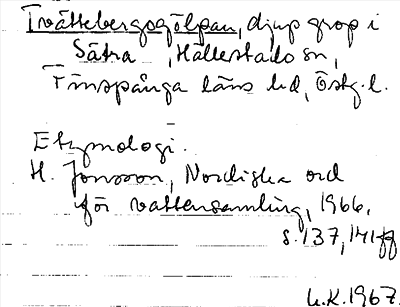 Tvättebergsgölpan, djup grop i
Sätra, Hällestads sn,
Finspånga läns hd, Östg.l.
Etymologi.
H. Jonsson, Nordiska ord
för vattensamling, 1966,
s. 137, 141 ff
U.K. 1967.